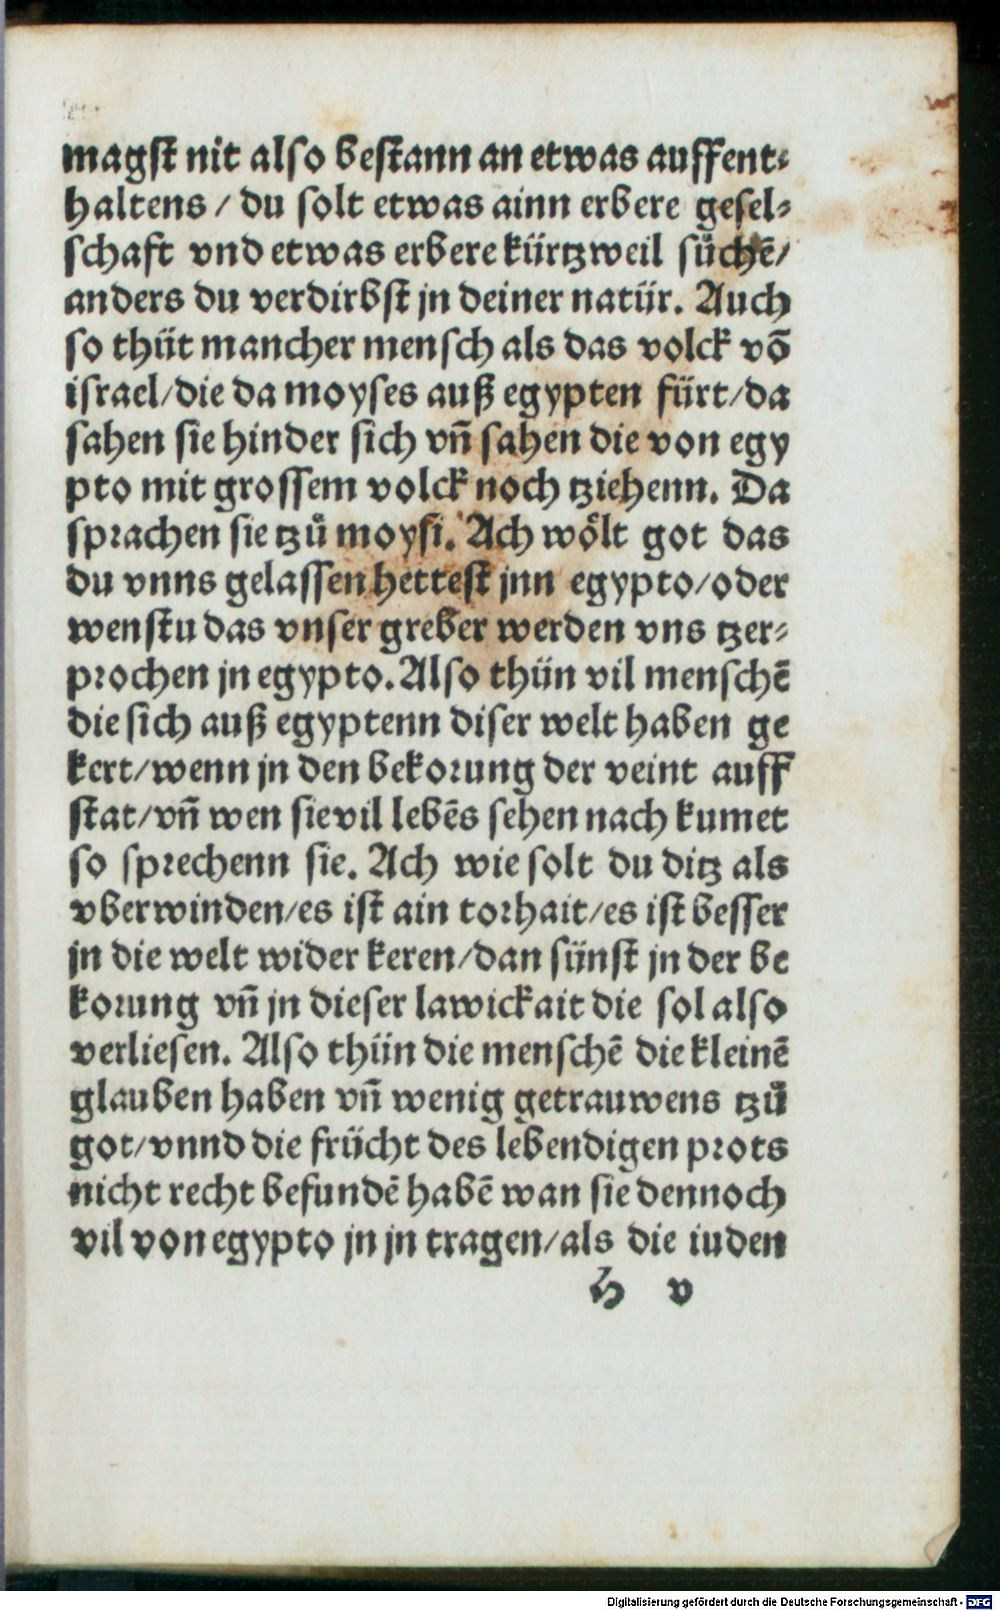 magst nit also bestann an etwas auffent⸗
haltens / du solt etwas ainn erbere gesel⸗
schaft vnd etwas erbere kürtzweil sůchē/
anders du verdirbst jn deiner natür. Auch
so thüt mancher mensch als das volck vō
israel/die da moyses auß egypten fürt/da
sahen sie hinder sich vn̄ sahen die von egy
pto mit grossem volck noch tziehenn. Da
sprachen sie tzů moysi. Ach wölt got das
du vnns gelassen hettest jnn egypto/oder
wenstu das vnser greber werden vns tzer⸗
prochen jn egypto. Also thün vil menschē
die sich auß egyptenn diser welt haben ge
kert/wenn jn den bekorung der veint auff
stat/vn̄ wen sie vil lebēs sehen nach kumet
so sprechenn sie. Ach wie solt du ditz als
vberwinden/es ist ain torhait/es ist besser
jn die welt wider keren/dan sünst jn der be
korung vn̄ jn dieser lawickait die sol also
verliesen. Also thün die menschē die kleinē
glauben haben vn̄ wenig getrauwens tzů
got/vnnd die frücht des lebendigen prots
nicht recht befundē habē wan sie dennoch
vil von egypto jn jn tragen/als die iuden
h v
Digitalisierung gefördert durch die Deutsche Forschungsgemeinschaft - DFG